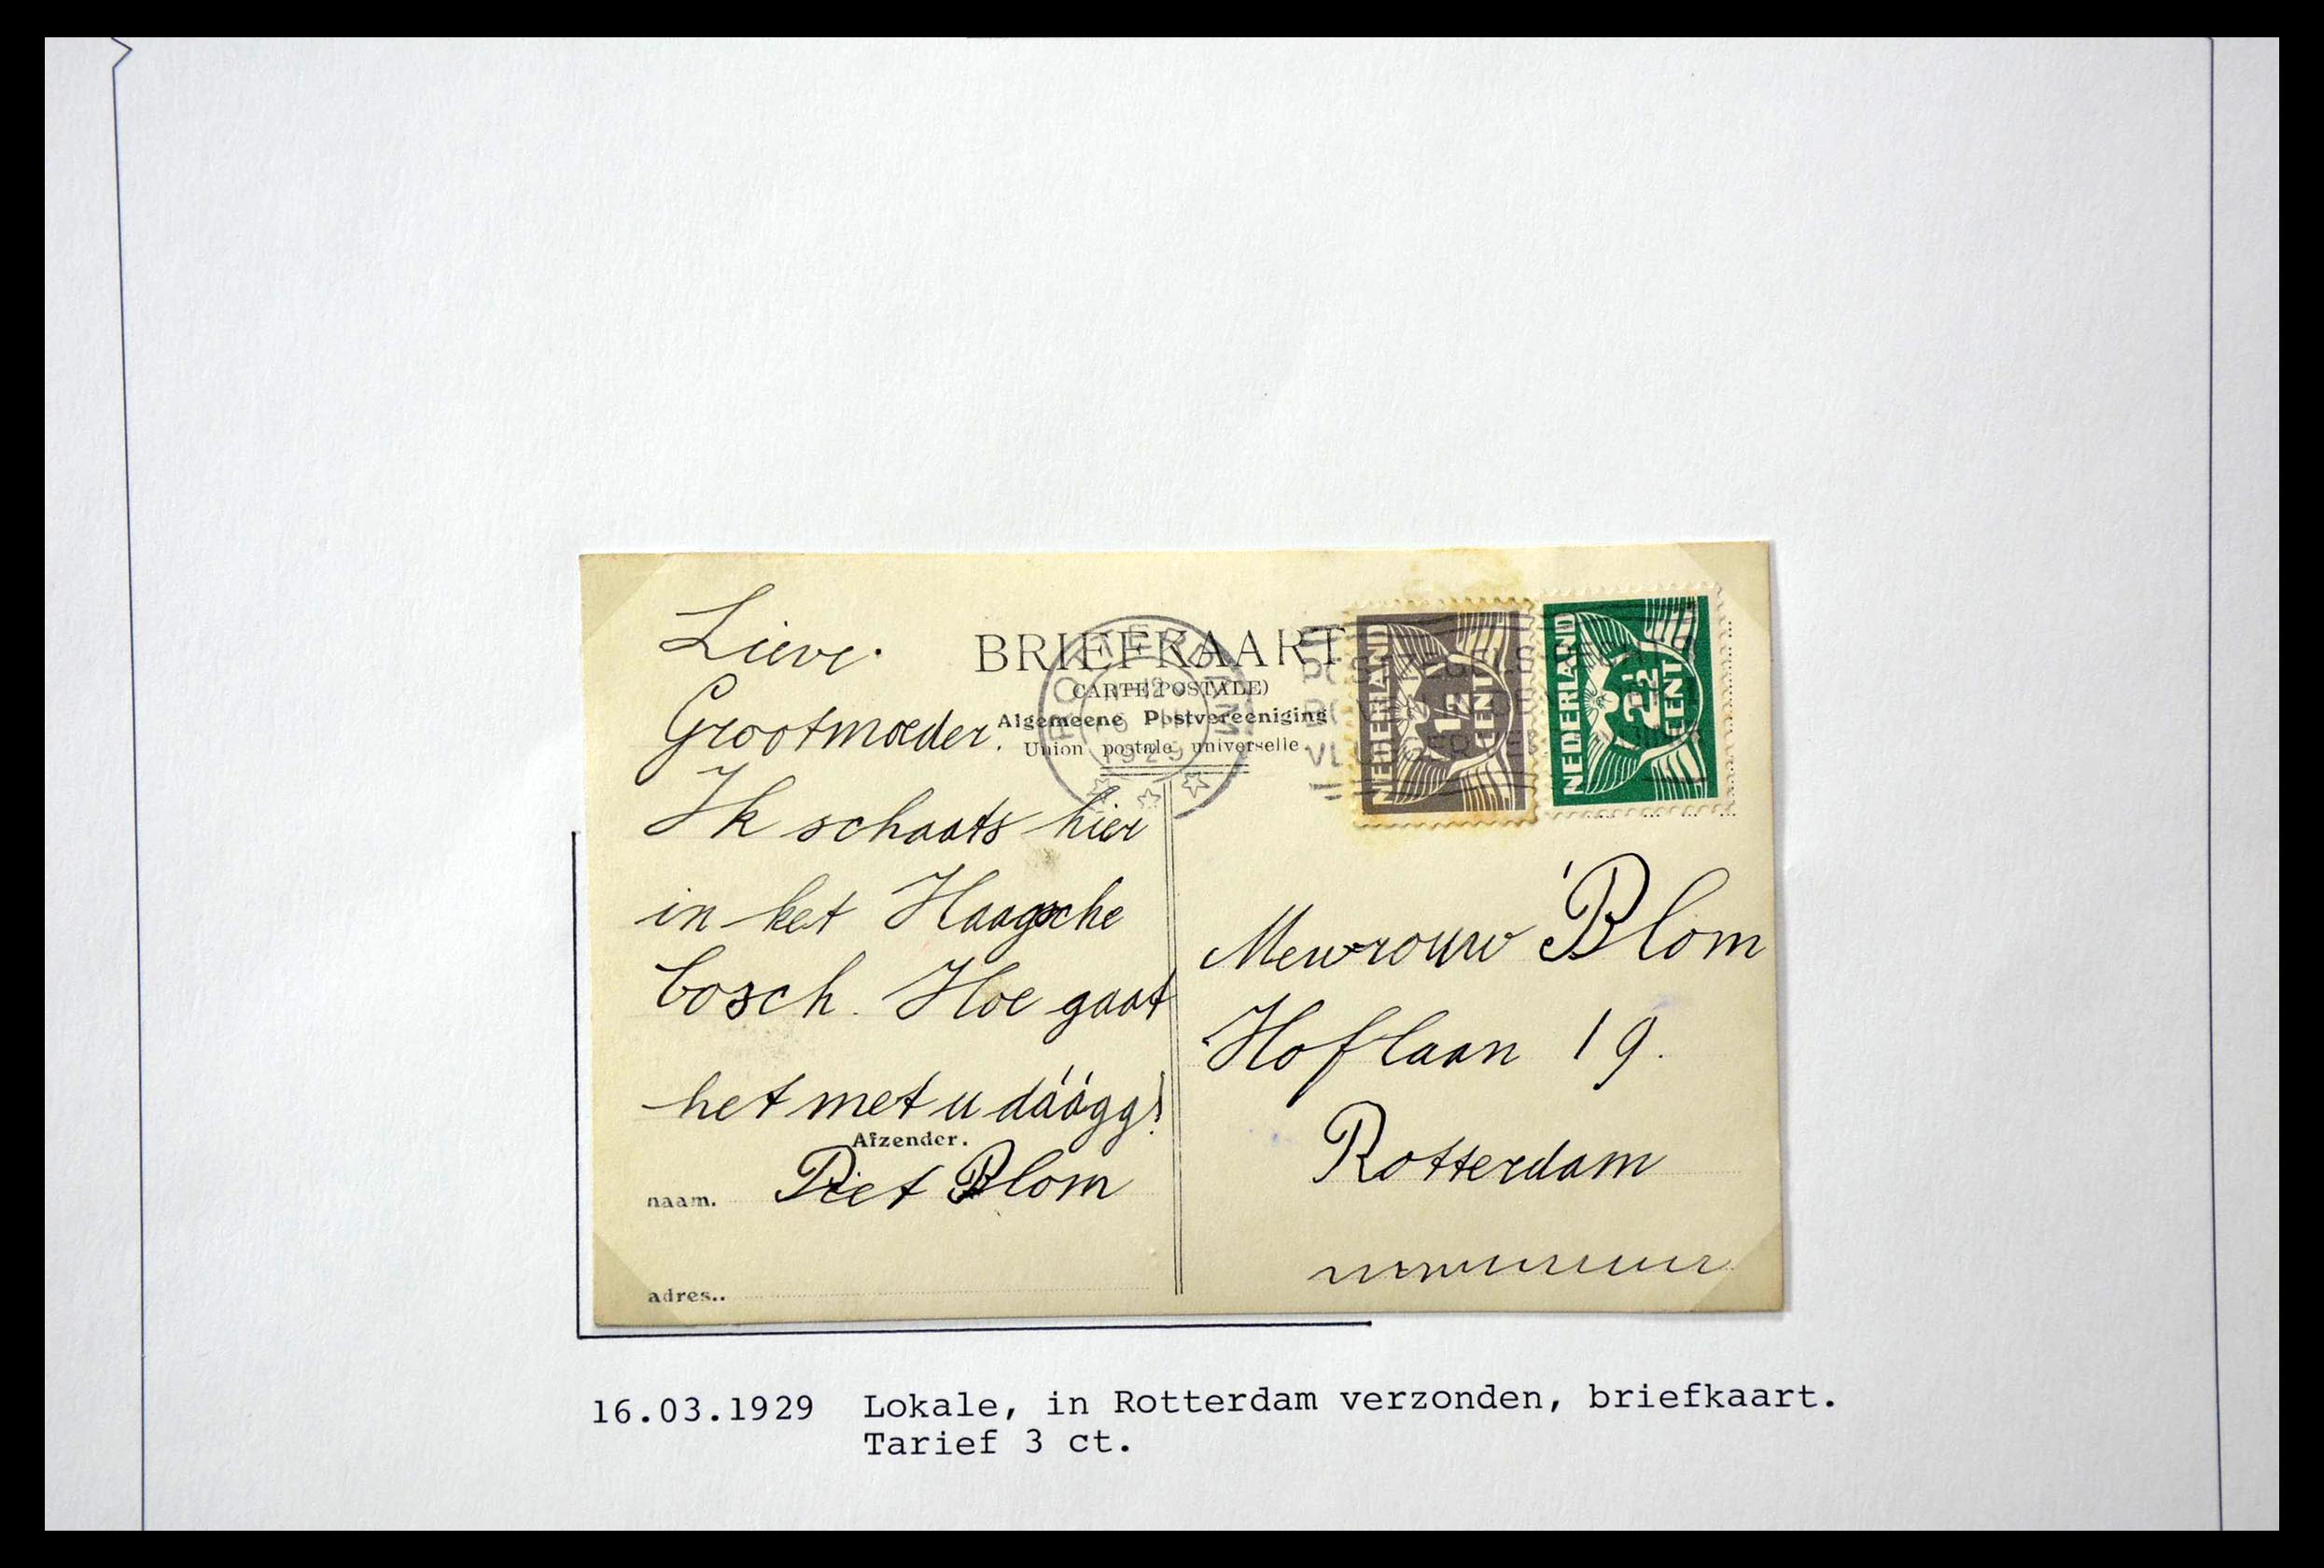 Lieve.
Grootmoeder.
Ik schaats hier
in het Haagsche
bosch. Hoe gaat
het met u dáágg!
Afzender.
naam. Piet Blom
adres..
BRIEFKAART
(CARTE POSTALE)
Algemeene Postvereeniging
Union postale universelle
1929
NEDERLAND
1½
CENT
NEDERLAND
2½
CENT
Mevrouw Blom
Hoflaan 19.
Rotterdam
16.03.1929 Lokale, in Rotterdam verzonden, briefkaart.
Tarief 3 ct.